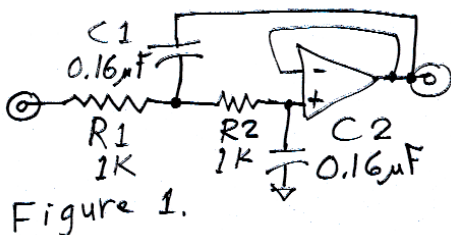 C1
0.16µF
R1
1K
R2
1K
-
+
C2
0.16µF
Figure 1.